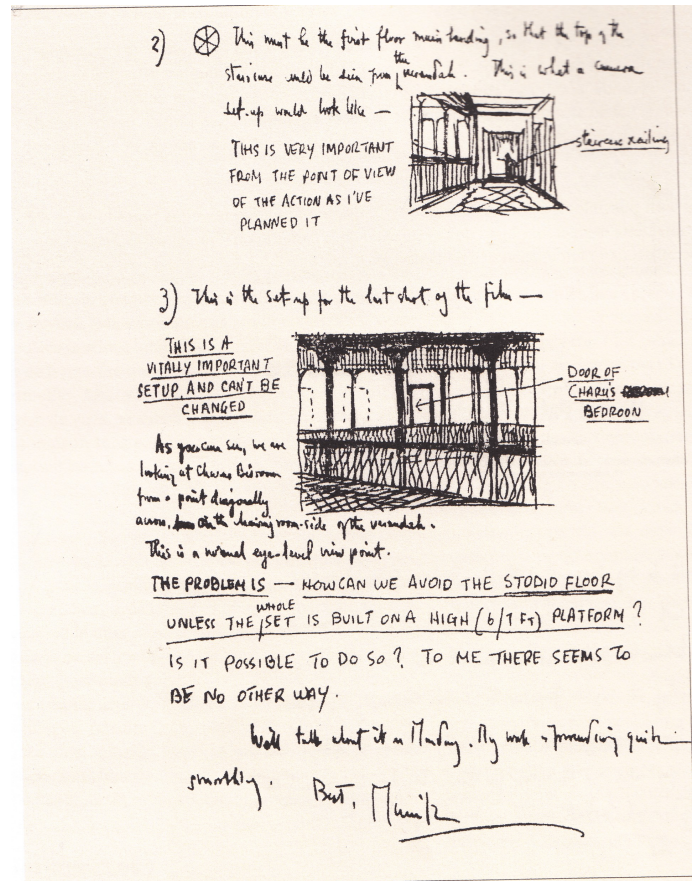 2) This must be the first floor main landing, so that the top of the
staircase could be seen from the verandah. This is what a camera
set-up would look like —
staircase railing
THIS IS VERY IMPORTANT
FROM THE POINT OF VIEW
OF THE ACTION AS I'VE
PLANNED IT
3) This is the set-up for the last shot of the film —
THIS IS A
VITALLY IMPORTANT
SETUP, AND CAN'T BE
CHANGED
DOOR OF
CHARU'S
BEDROOM
As you can see, we are
looking at Charu's Bedroom
from a point diagonally
across, on the drawing room-side of the verandah.
This is a normal eye-level view point.
THE PROBLEM IS — HOW CAN WE AVOID THE STUDIO FLOOR
UNLESS THE WHOLE SET IS BUILT ON A HIGH (6/7 FT) PLATFORM?
IS IT POSSIBLE TO DO SO? TO ME THERE SEEMS TO
BE NO OTHER WAY.
We'll talk about it on Monday. My work is proceeding quite
smoothly. Best, Manik